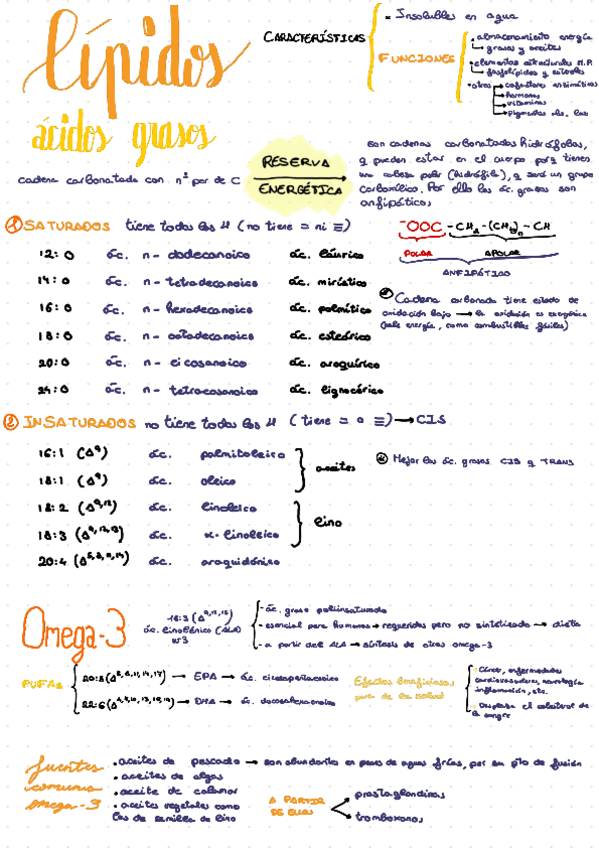 lípidos
ácidos grasos
CARACTERÍSTICAS
• Insolubles en agua
FUNCIONES
• almacenamiento energía
↳ grasas y aceites
• elementos estructurales M.P.
↳ fosfolípidos y esteroles
• otras → cofactores enzimáticos
→ hormonas
→ vitaminas
→ Pigmentos
cadena carbonatada con nº par de C
RESERVA
ENERGÉTICA
son cadenas carbonatadas hidrófobas,
q pueden estar en el cuerpo porq tienes
una cabeza polar (hidrófila), q será un grupo
carboxílico. Por ello los ác. grasos son
anfipáticos
① SATURADOS tiene todos los H (no tiene = ni ≡)
12:0 ác. n-dodecanoico ác. láurico
14:0 ác. n-tetradecanoico ác. mirístico
16:0 ác. n-hexadecanoico ác. palmítico
18:0 ác. n-octadecanoico ác. esteárico
20:0 ác. n-eicosanoico ác. araquírico
24:0 ác. n-tetracosanoico ác. lignocérico
⁻OOC - CH₂ - (CH₂)n - CH
POLAR APOLAR
ANFIPÁTICO
Cadena carbonada tiene estado de
oxidación bajo → la oxidación es exergónica
(sale energía, como combustibles fósiles)
② INSATURADOS no tiene todos los H (tiene = o ≡) → CIS
16:1 (Δ⁹) ác. palmitoleico
18:1 (Δ⁹) ác. oleico
aceites
18:2 (Δ⁹,¹²) ác. linoleico
18:3 (Δ⁹,¹²,¹⁵) ác. α-linoleico
lino
20:4 (Δ⁵,⁸,¹¹,¹⁴) ác. araquidónico
Mejor los ác. grasos CIS q TRANS
Omega-3
18:3 (Δ⁹,¹²,¹⁵)
ác. linolénico (ALA)
ω3
- ác. graso poliinsaturado
- esencial para humanos → requeridos pero no sintetizado → dieta
- a partir del ALA → síntesis de otros omega-3
PUFAs
20:5 (Δ⁵,⁸,¹¹,¹⁴,¹⁷) → EPA → ác. eicosapentaenoico
22:6 (Δ⁴,⁷,¹⁰,¹³,¹⁶,¹⁹) → DHA → ác. docosahexaenoico
Efectos beneficiosos
para la salud
Cáncer, enfermedades
cardiovasculares, neurología
inflamación, etc.
Desplaza el colesterol de
la sangre
fuentes
comunes
omega-3
• aceites de pescado → son abundantes en peces de aguas frías, por su pto de fusión
• aceites de algas
• aceite de calamar
• aceites vegetales como
los de semilla de lino
A PARTIR
DE ELLOS
prostaglandinas
tromboxanos